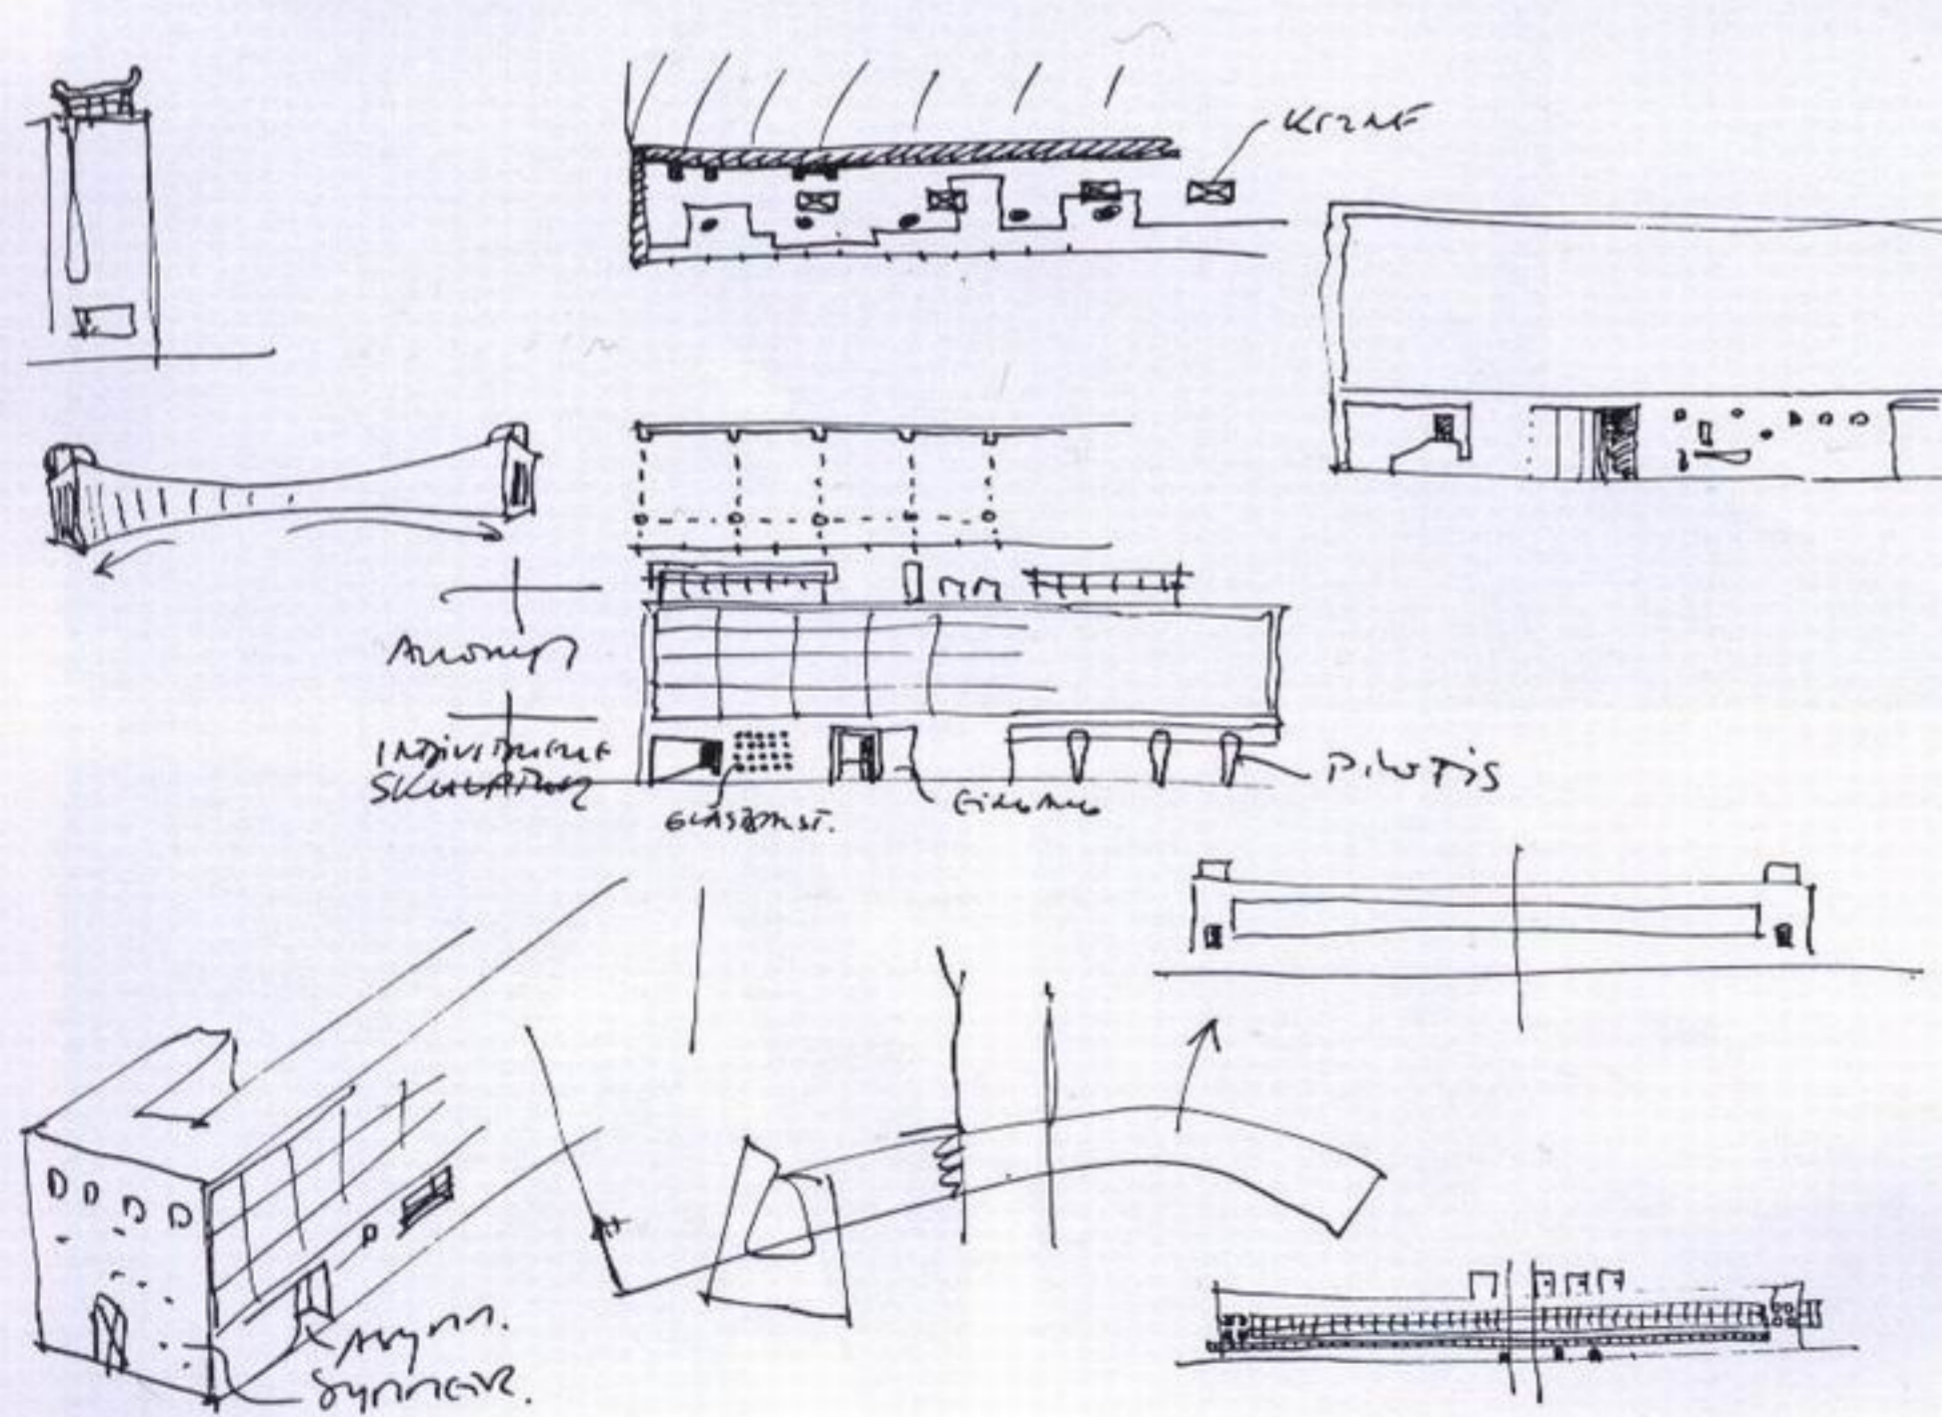 KERNE
ANONYM
INDIVIDUELLE
SKULPTUR
GLASBAUST.
EINGANG
PILOTIS
ASYMM.
SYMMETR.